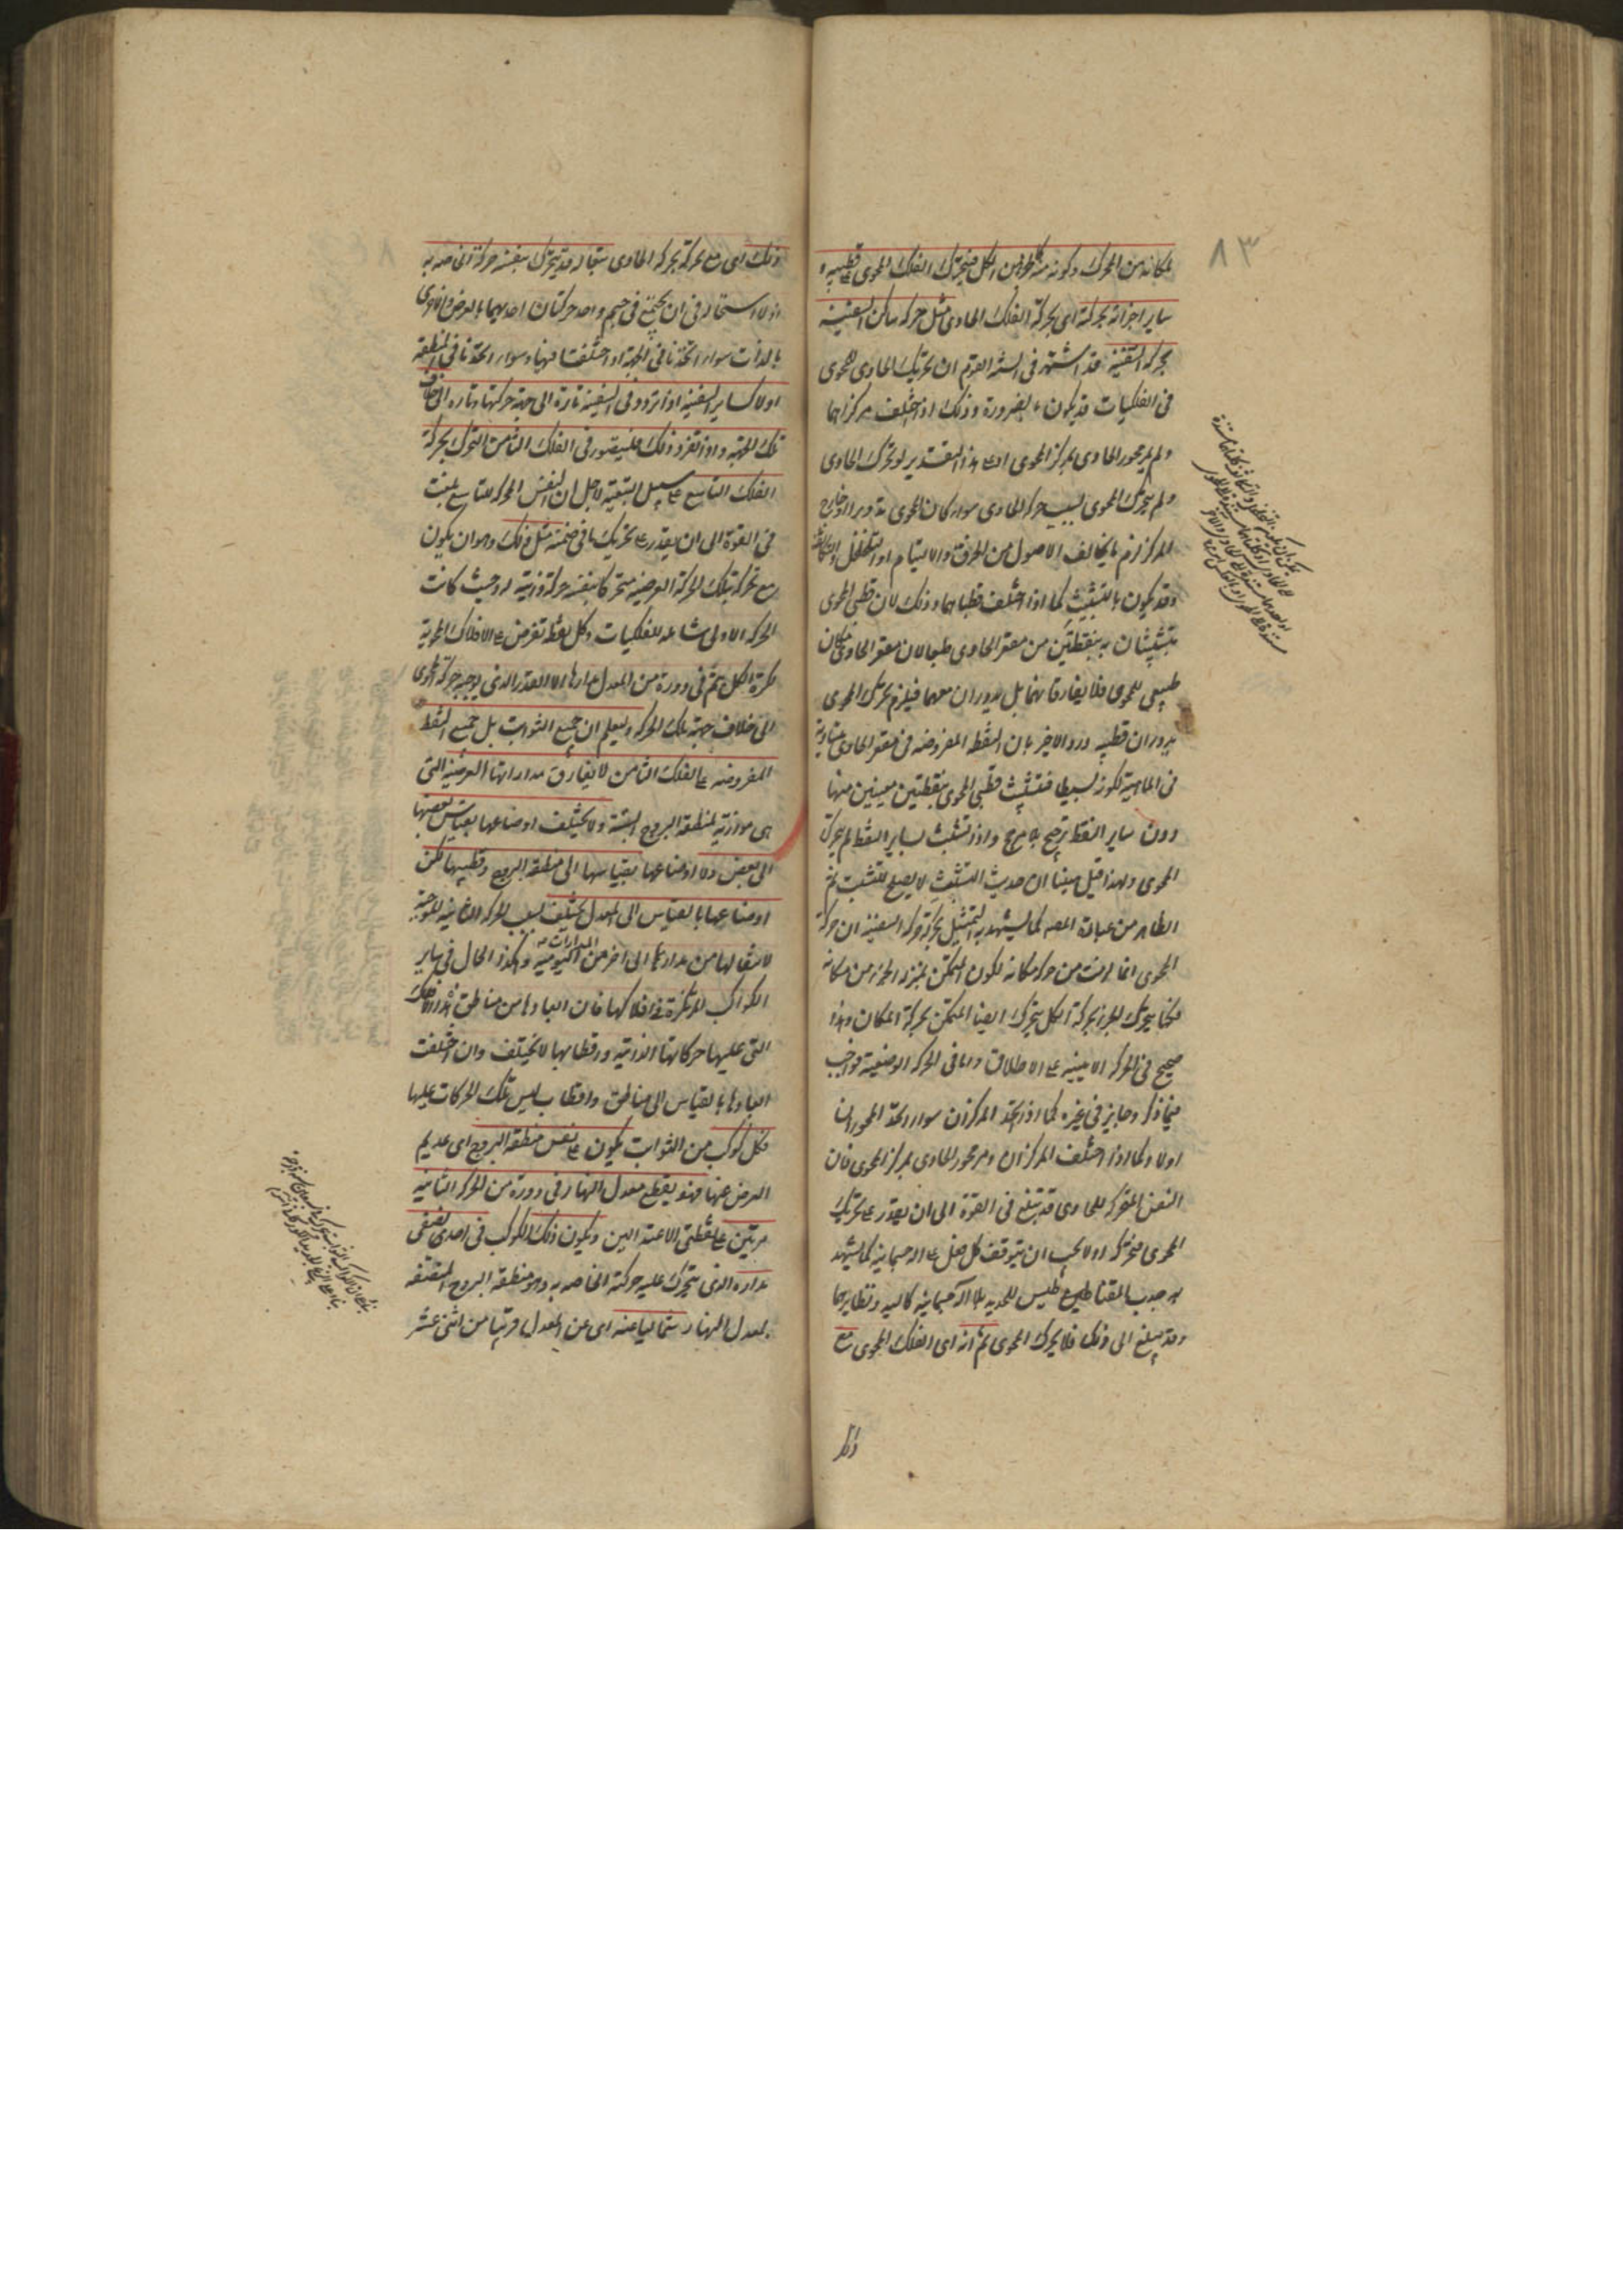 ٨٣
لمكانه من المحرك وكونه منه كجزء من الكل فيتحرك الفلك المحوى على قطبيه و
ساير اجزائه بحركته اى بحركة الفلك الحاوى مثل حركة ساكن السفينة
بحركة السفينة قد اشتهر فى السنة القوم ان تحريك الحاوى للمحوى
فى الفلكيات قد يكون بالضرورة وذلك اذا اختلف مركزاهما
ولم يمر محور الحاوى بمركز المحوى اذ على هذا التقدير لو تحرك الحاوى
ولم يتحرك المحوى بسبب حركة الحاوى سواء كان المحوى تدويرا او خارج
المركز لزم ما يخالف الاصول من الخرق والالتيام او التخلخل والتكاثف
وقد يكون بالتشبث كما اذا اختلف قطباهما وذلك لان قطبى المحوى
يتشبثان بنقطتين من مقعر الحاوى طبعا لان مقعر الحاوى مكان
طبيعى للمحوى فلا يفارقانهما بل يدوران معهما فيلزم تحرك المحوى
بدوران قطبيه ورد الاخير بان النقط المفروضة فى مقعر الحاوى متساوية
فى الماهية لكونه بسيطا فتشبث قطبى المحوى بنقطتين معينين منها
دون ساير النقط ترجيح بلا مرجح واذا تشبث بساير النقط لم يتحرك
المحوى ولهذا قيل مبينا ان حديث التشبث لا يصلح للتشبث ثم
الظاهر من عبارة المصـ كما يشهد به التمثيل بحركة السفينة ان حركة
المحوى انما لزمت من حركة مكانه لكون المتمكن بمنزلة الجزء من مكانه
فكما يتحرك الجزء بحركة الكل يتحرك ايضا المتمكن بحركة المكان وهذا
صحيح فى الحركة الاينية على الاطلاق واما فى الحركة الوضعية فواجب
فيما ذكر وجايز فى غيره كما اذا اتحد المركزان سواء اتحد المحوران
اولا وكما اذا اختلف المركزان ومر محور الحاوى بمركز المحوى فان
النفس المحركة للحاوى قد تبلغ فى القوة الى ان يقدر على تحريك
المحوى فتحركه اولا يجب ان يتوقف كل فعل على الة جسمانية كما يشهد
به جذب المقناطيس للحديد بلا آلة جسمانية كاليد ونظايرها
وقد يبلغ الى ذلك فلا يحرك المحوى ثم انه اى الفلك المحوى مع
ذلك
ذلك اى مع تحركه بحركة الحاوى تبعا له قد يتحرك بنفسه حركة خاصة به
اذ لا استحالة فى ان يجتمع فى جسم واحد حركتان احديهما بالعرض والاخرى
بالذات سواء اتحدتا فى الجهة او اختلفتا فيها وسواء اتحدتا فى المنطقة
اولا كساير السفينة اذا تردد فى السفينة تارة الى جهة حركتها وتارة الى خلاف
تلك الجهة واذا تقرر ذلك فليتصور فى الفلك الثامن التحرك بحركة
الفلك التاسع على سبيل التبعية لاجل ان النفس المحركة للتاسع بلغت
فى القوة الى ان يقدر على تحريك ما فى ضمنه مثل ذلك وهو ان يكون
مع تحركه بتلك الحركة العرضية متحركا بنفسه حركة ذاتية له وحيث كانت
الحركة الاولى شاملة للفلكيات وكل نقطة تفرض على الافلاك المحوية
لكرة الكل تتم فى دورة من المعدل مدارها الا القدر الذى يوجبه حركة المحوى
الى خلاف جهة تلك الحركة وليعلم ان جميع الثوابت بل جميع النقط
المفروضة على الفلك الثامن لا يفارق مداراتها العرضية التى
هى موازية لمنطقة البروج البتة ولا يختلف اوضاعها بقياس بعضها
الى بعض ولا اوضاعها بقياسها الى منطقة البروج وقطبيها لكن
اوضاعها بالقياس الى المعدل يختلف بسبب الحركة الثانية الموجبة
لانتقالها من مدارها الى اخر من المدارات اليومية وهكذا الحال فى ساير
الكواكب المرتكزة فى افلاكها فان ابعادها من مناطق هذه الافلاك
التى عليها حركاتها الذاتية واقطابها لا يختلف وان اختلفت
ابعادها بالقياس الى مناطق واقطاب ليس تلك الحركات عليها
فكل كوكب من الثوابت يكون على نفس منطقة البروج اى عديم
العرض عنها فهو يقطع معدل النهار فى دورة من الحركة الثانية
مرتين على نقطتى الاعتدالين ويكون ذلك الكوكب فى احدى نصفى
مداره الذى يتحرك عليه حركته الخاصة به وهو منطقة البروج المنصفة
بمعدل النهار شماليا عنه اى عن المعدل قريبا من اثنى عشر